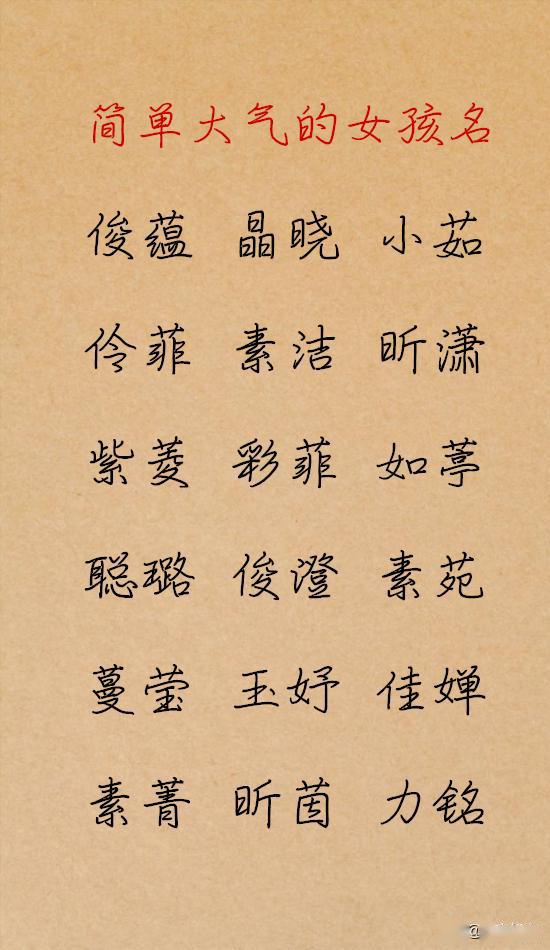 简单大气的女孩名
俊蕴 晶晓 小茹
伶菲 素洁 昕潇
紫菱 彩菲 如葶
聪璐 俊澄 素苑
蔓莹 玉妤 佳婵
素菁 昕茵 力铭
@